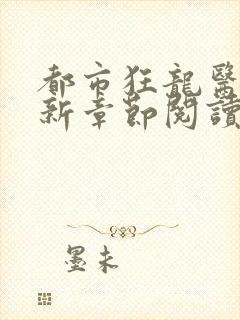 都市狂龍醫
新章節閱讀
墨未